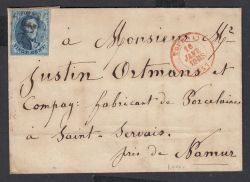 à Monsieur M²
Justin Ortmans et
Compag: fabricant de Porcelaines
à Saint-Servais.
près de Namur